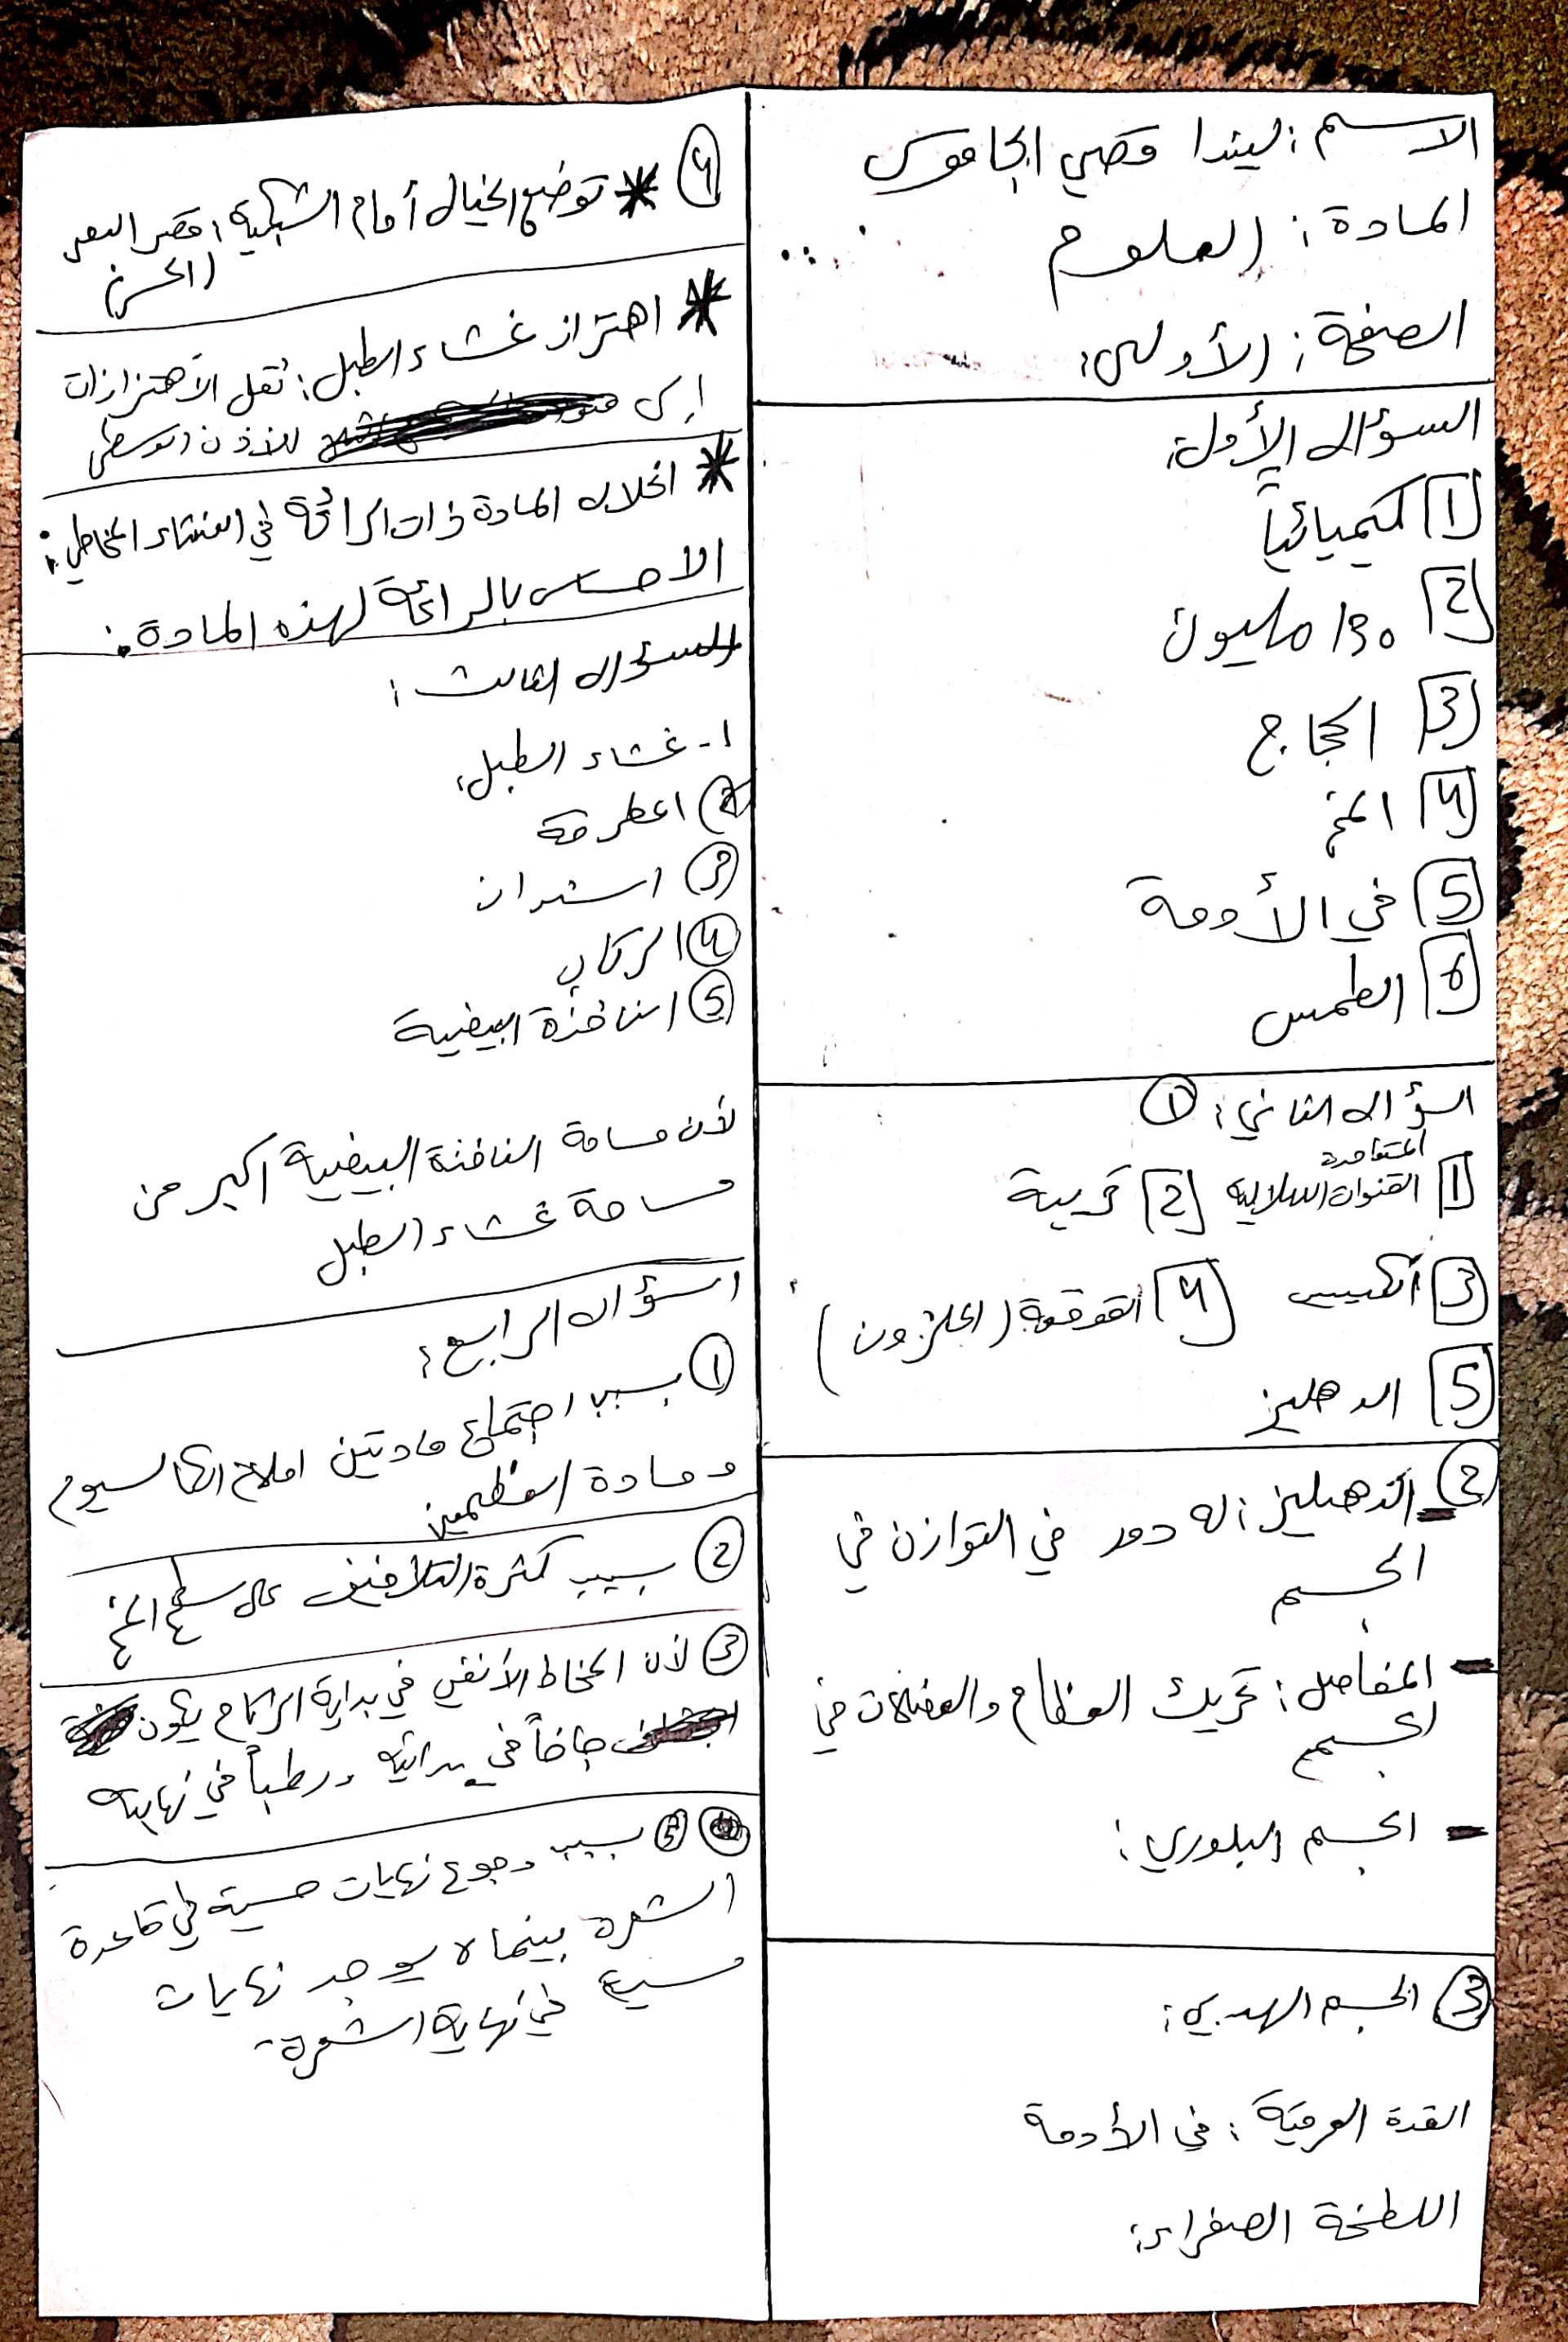 الاسم : ليندا قصي الجاموس
المادة : العلوم
الصفحة : الأولى :
السؤال الأول :
1 كيميائياً
2 130 مليون
3 الحجاج
4 المخ
5 في الأدمة
6 الطمس
السؤال الثاني : 1
1 القنوات الهلالية المتعامدة 2 قريبة
3 الكييس 4 القوقعة ( الحلزون )
5 الدهليز
2 - الدهليز : له دور في التوازن في
الجسم
- المفاصل : تحريك العظام والعضلات في
الجسم
- الجسم البلوري :
3 الجسم الهدبي :
الغدة العرقية : في الأدمة
اللطخة الصفراء :
4 * توضع الخيال أمام الشبكية : قصر البصر
(الحسر)
* اهتزاز غشاء الطبل : نقل الاهتزازات
إلى للأذن الوسطى
* انحلال المادة ذات الرائحة في الغشاء المخاطي :
الاحساس بالرائحة لهذه المادة .
السؤال الثالث :
1- غشاء الطبل
2 المطرقة
3 السندان
4 الركاب
5 النافذة البيضية
لأن مساحة النافذة البيضية اكبر من
مساحة غشاء الطبل
السؤال الرابع :
1 بسبب اجتماع مادتين املاح الكالسيوم
ومادة العظمين
2 بسبب كثرة التلافيف على سطح المخ
3 لأن المخاط الأنفي في بداية الزكام يكون
جافاً في بدايته ورطباً في نهايته
5 بسبب وجود نهايات حسية في قاعدة
الشعرة بينما لا يوجد نهايات
حسية في نهاية الشعرة